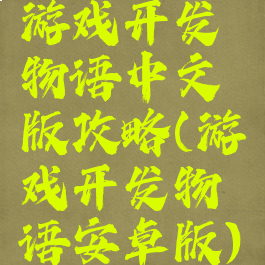 游戏开发
物语中文
版攻略(游
戏开发物
语安卓版)